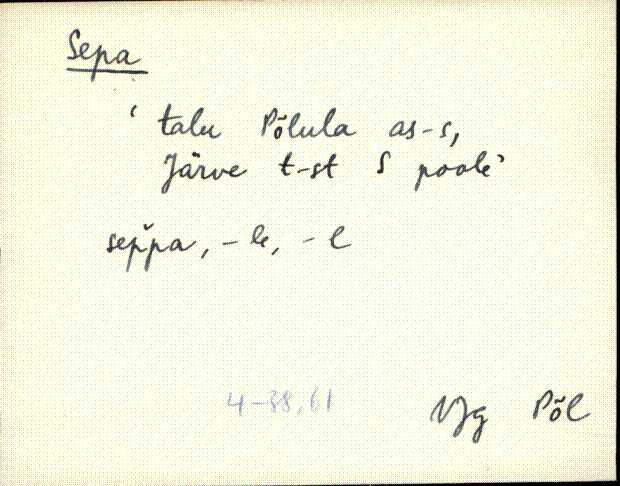 Sepa
‘ talu Põlula as-s,
Järve t-st S poole’
sep̆pa, -le, -l
4-38, 61
VJg Põl